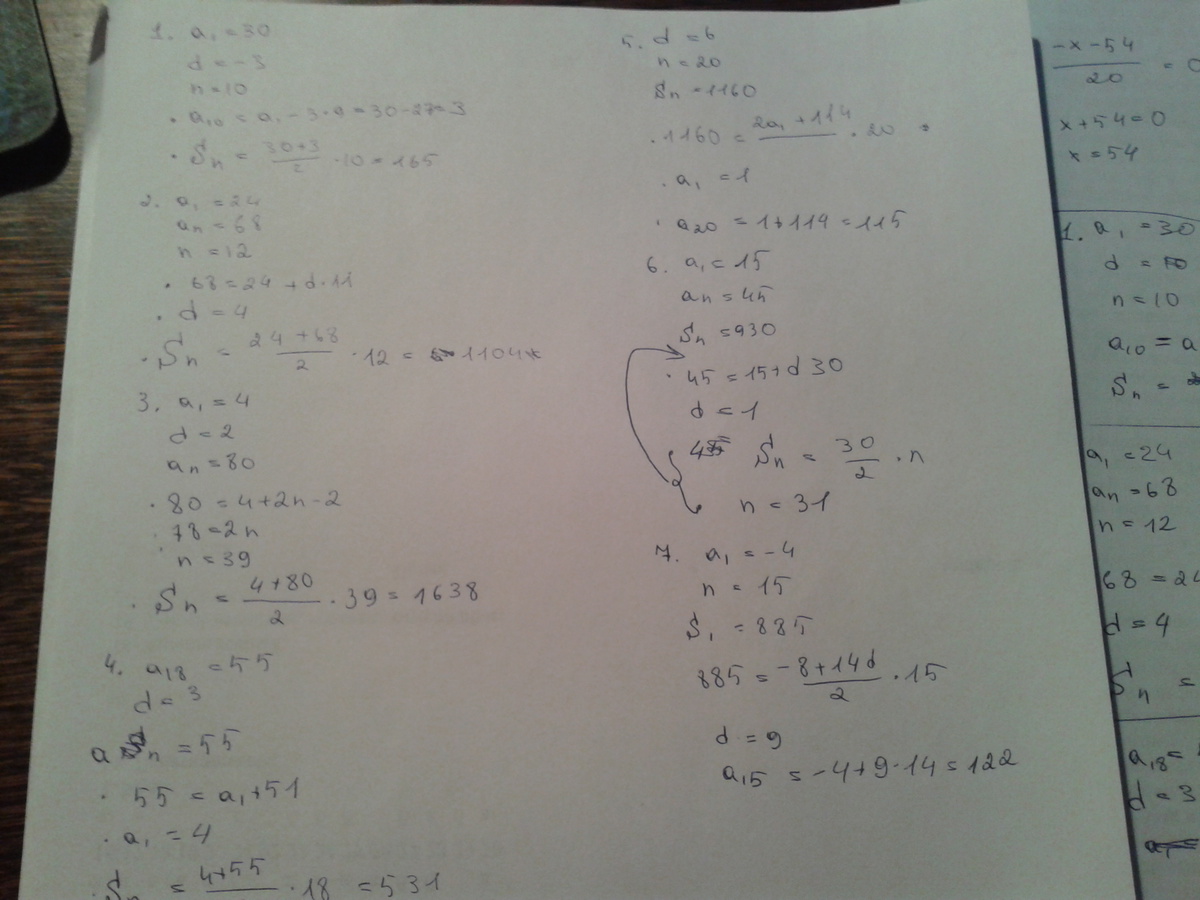 1. a₁ = 30
d = -3
n = 10
· a₁₀ = a₁ - 3·9 = 30 - 27 = 3
· Sₙ = (30+3)/2 · 10 = 165
2. a₁ = 24
aₙ = 68
n = 12
· 68 = 24 + d·11
· d = 4
· Sₙ = (24+68)/2 · 12 = 1104
3. a₁ = 4
d = 2
aₙ = 80
· 80 = 4+2n-2
· 78 = 2n
· n = 39
· Sₙ = (4+80)/2 · 39 = 1638
4. a₁₈ = 55
d = 3
aₙ = 55
· 55 = a₁+51
· a₁ = 4
· Sₙ = (4+55)/ · 18 = 531
5. d = 6
n = 20
Sₙ = 1160
· 1160 = (2a₁ + 114)/ · 20
· a₁ = 1
· a₂₀ = 1+114 = 115
6. a₁ = 15
aₙ = 45
Sₙ = 930
· 45 = 15+d30
d = 1
Sₙ = 30/2 · n
n = 31
7. a₁ = -4
n = 15
S₁ = 885
885 = (-8+14d)/2 · 15
d = 9
a₁₅ = -4+9·14 = 122
(-x-54)/20 = 0
x+54=0
x = 54
1. a₁ = 30
d =
n = 10
a₁₀ = a
Sₙ =
a₁ = 24
aₙ = 68
n = 12
68 = 24
d = 4
Sₙ =
a₁₈ =
d = 3